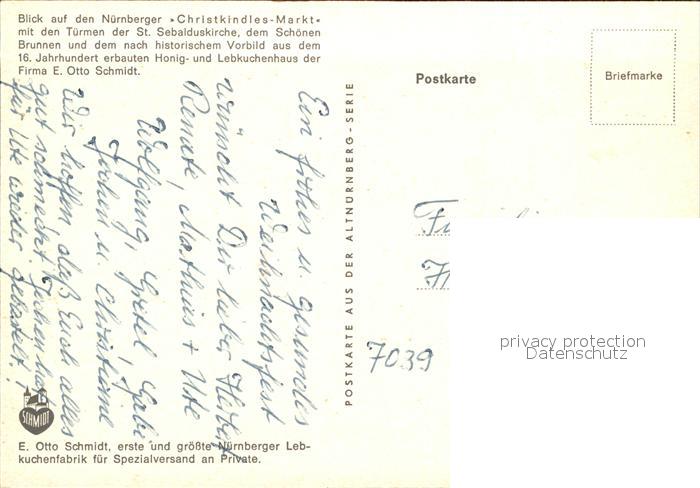 Blick auf den Nürnberger »Christkindles-Markt«
mit den Türmen der St. Sebalduskirche, dem Schönen
Brunnen und dem nach historischem Vorbild aus dem
16. Jahrhundert erbauten Honig- und Lebkuchenhaus der
Firma E. Otto Schmidt.
Ein frohes u. gesundes
Weihnachtsfest
wünscht Dir lieber Herbert
Renate, Mathias + Ute
Wolfgang, Gretel, Gabi
Jochen u. Christiane
Wir hoffen, daß Euch alles
gut schmeckt. Jochen hat
für Ute wieder gebastelt!
SCHMIDT
E. Otto Schmidt, erste und größte Nürnberger Leb-
kuchenfabrik für Spezialversand an Private.
POSTKARTE AUS DER ALTNÜRNBERG-SERIE
Postkarte
Briefmarke
7039
privacy protection
Datenschutz